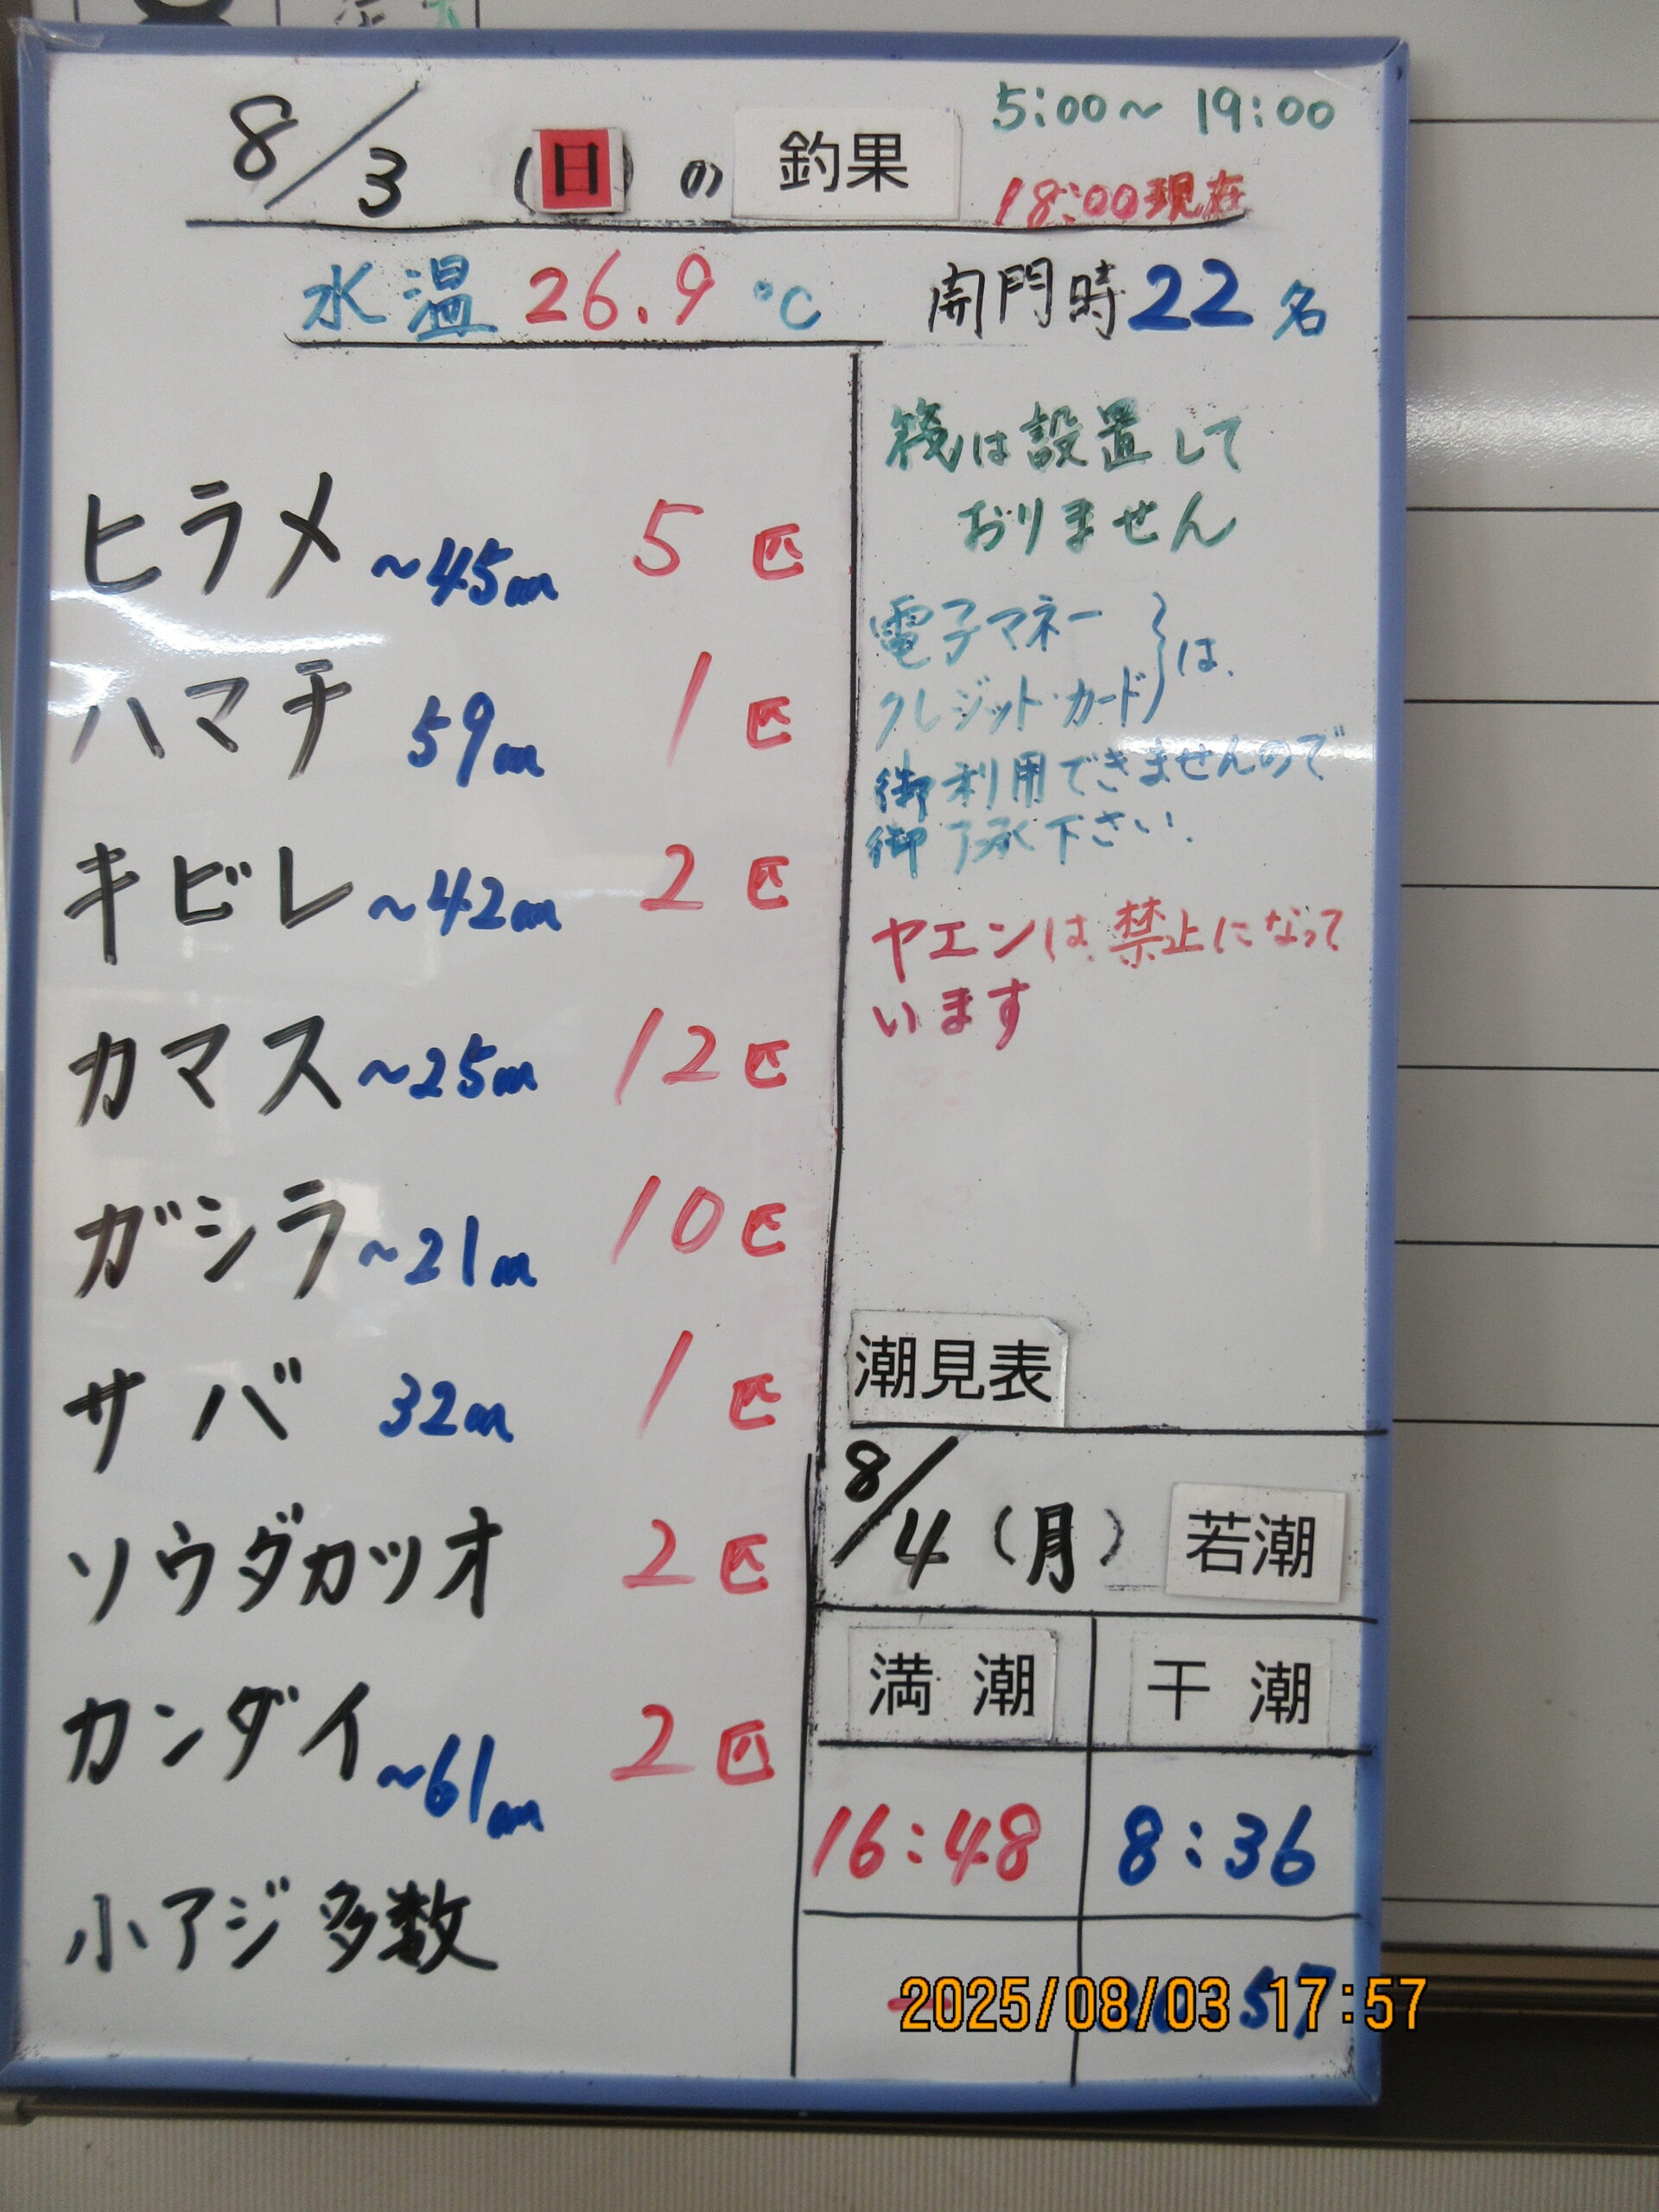 8/3 (日) の 釣果
5:00~ 19:00
18:00現在
水温 26.9 ℃
開門時 22 名
ヒラメ ~45cm 5 匹
ハマチ 59cm 1 匹
キビレ ~42cm 2 匹
カマス ~25cm 12 匹
ガシラ ~21cm 10 匹
サバ 32cm 1 匹
ソウダカツオ 2 匹
カンダイ ~61cm 2 匹
小アジ 多数
筏は設置して
おりません
電子マネー
クレジット・カード}は、
御利用できませんので
御了承下さい.
ヤエンは、禁止になって
います
潮見表
8/4 (月) 若潮
満潮 干潮
16:48 8:36
2025/08/03 17:57